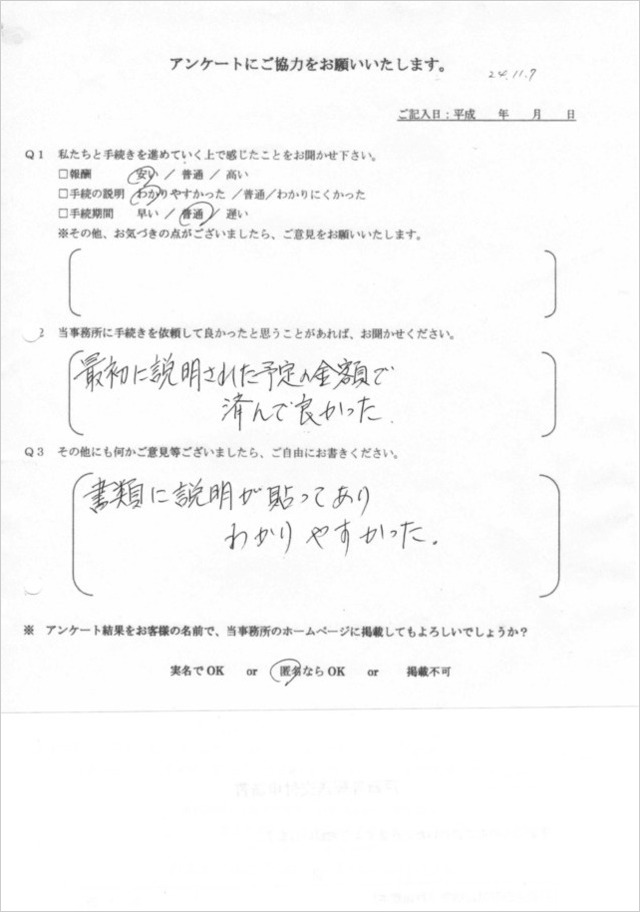 アンケートにご協力をお願いいたします。
24.11.7
ご記入日：平成　　年　　月　　日
Q1　私たちと手続きを進めていく上で感じたことをお聞かせ下さい。
□報酬　　安い ／ 普通 ／ 高い
□手続の説明　わかりやすかった ／普通／わかりにくかった
□手続期間　　早い ／ 普通 ／ 遅い
※その他、お気づきの点がございましたら、ご意見をお願いいたします。
2　当事務所に手続きを依頼して良かったと思うことがあれば、お聞かせください。
最初に説明された予定の金額で
済んで良かった.
Q3　その他にも何かご意見等ございましたら、ご自由にお書きください。
書類に説明が貼ってあり
わかりやすかった。
※　アンケート結果をお客様の名前で、当事務所のホームページに掲載してもよろしいでしょうか？
実名でOK　or　匿名ならOK　or　掲載不可